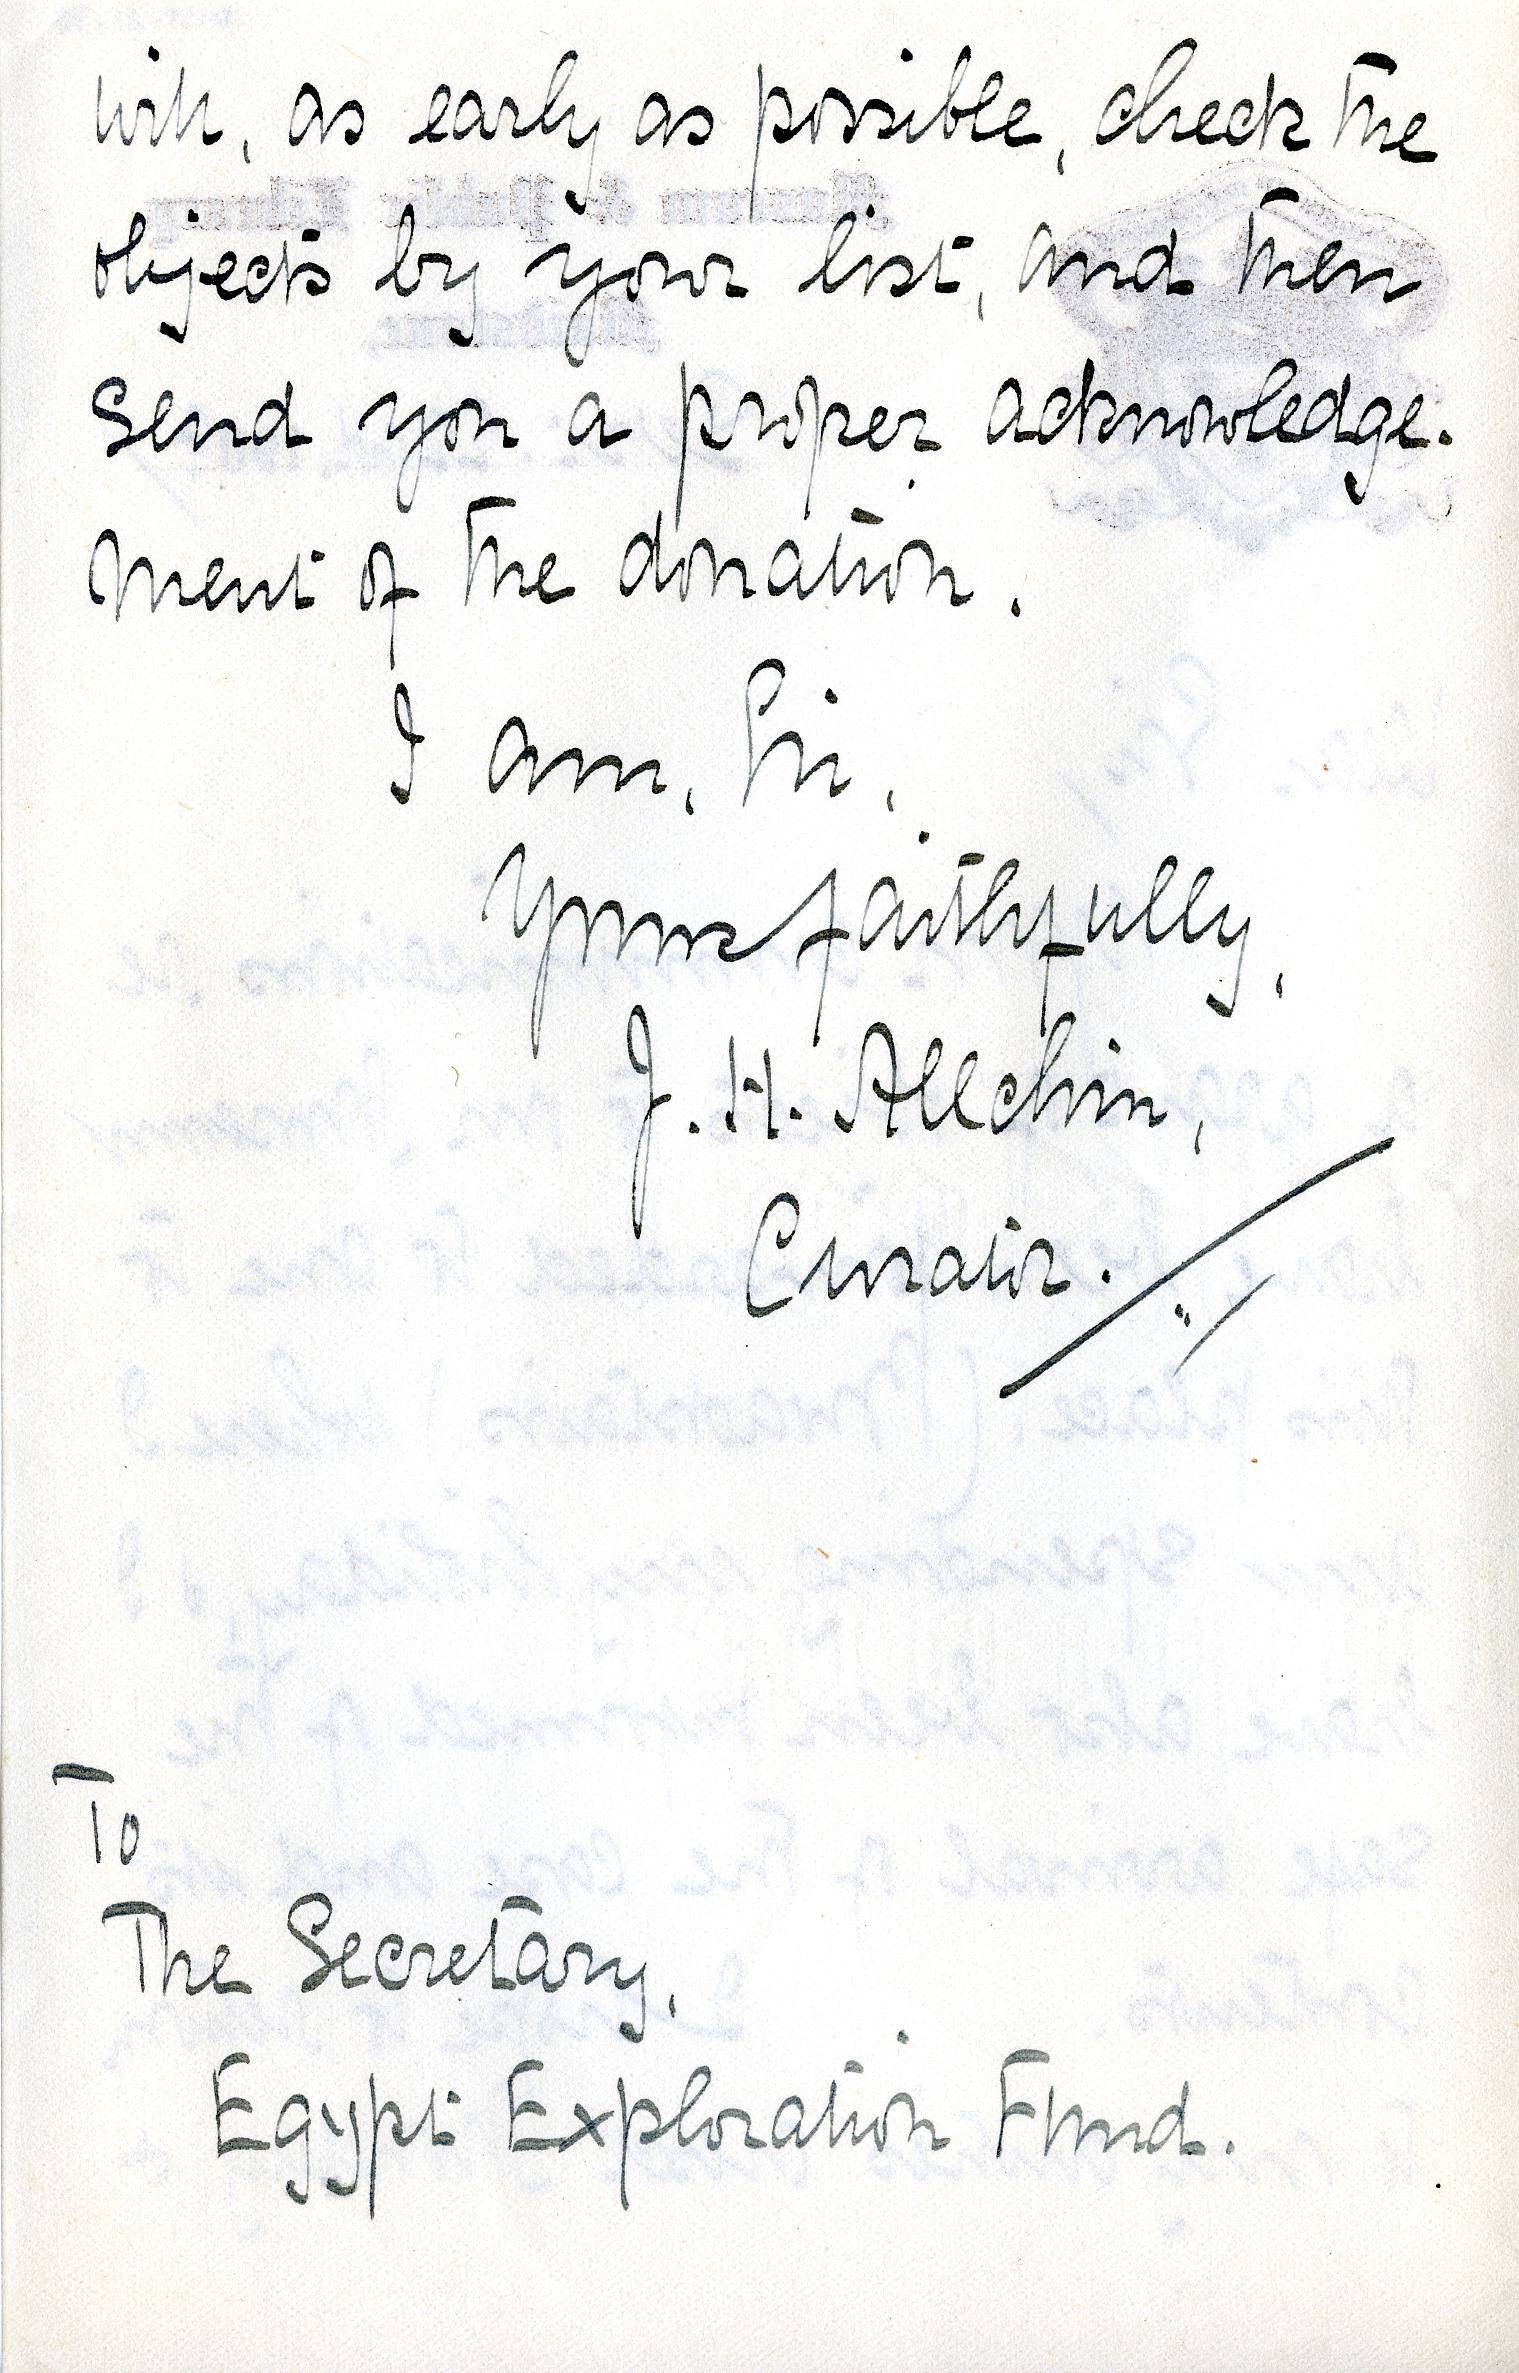 will, as early as possible, check the
objects by your list, and then
send you a proper acknowledge-
ment of the donation.
I am, Sir,
Yours faithfully,
J. H. Allchin,
Curator.
To
The Secretary,
Egypt Exploration Fund.